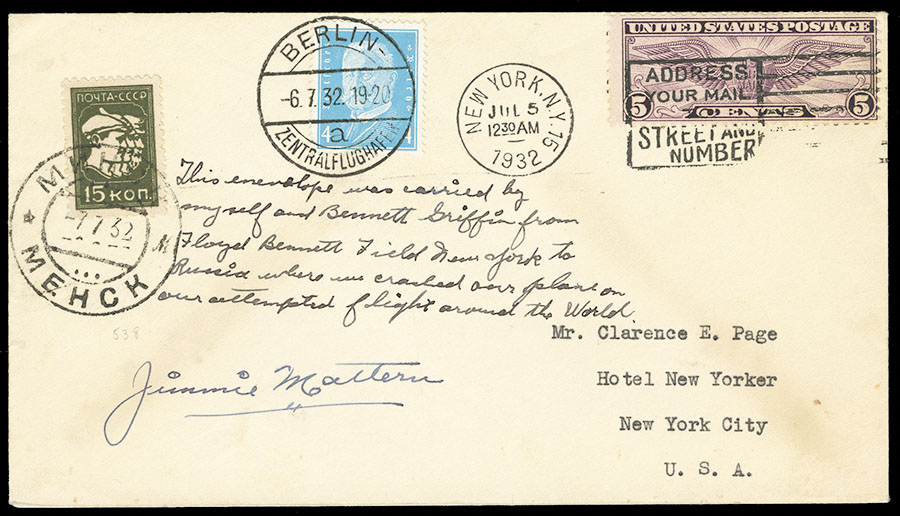 UNITED STATES POSTAGE
5 CENTS 5
ADDRESS
YOUR MAIL
STREET AND
NUMBER
NEW YORK, N.Y. 15
JUL 5
12 30 AM
1932
BERLIN-
-6.7.32.19-20
a
ZENTRALFLUGHAFEN
4 4
ПОЧТА-СССР
15 КОП.
-7 7 32
МЕНСК
This envelope was carried by
myself and Bennett Griffin from
Floyd Bennett Field New York to
Russia where we crashed our plane on
our attempted flight around the World.
538
Jimmie Mattern
Mr. Clarence E. Page
Hotel New Yorker
New York City
U. S. A.